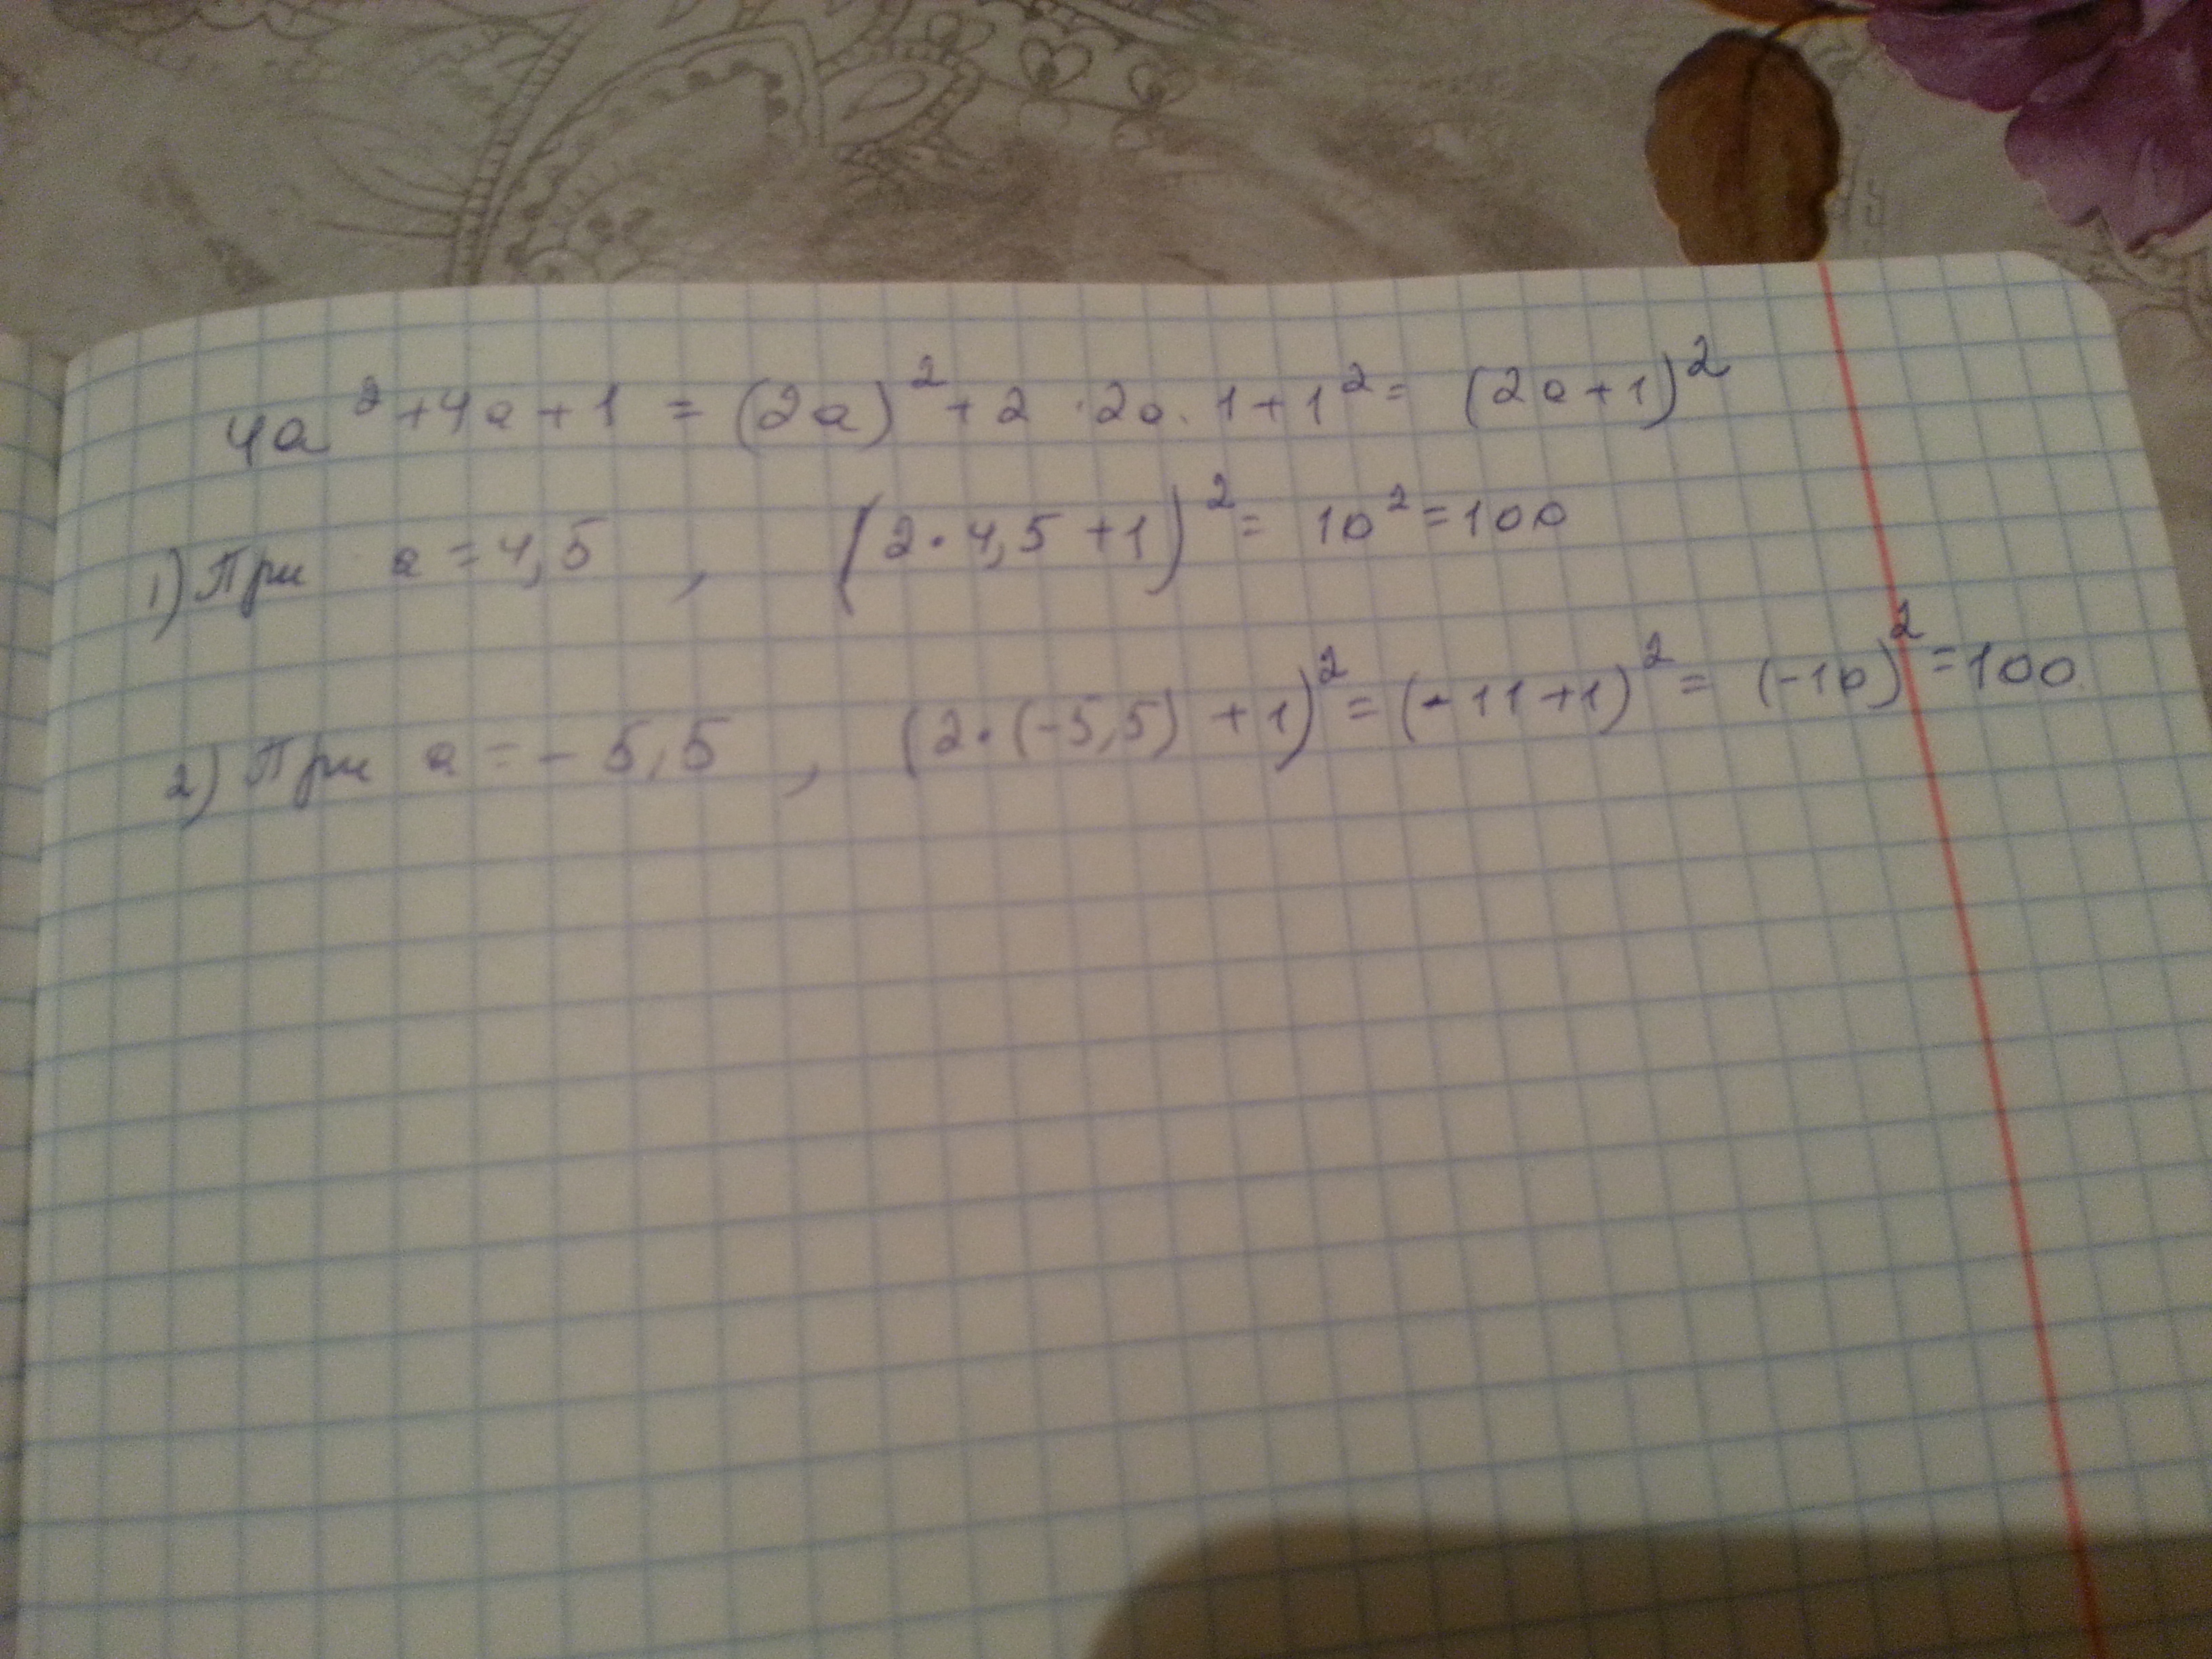 4a² + 4a + 1 = (2a)² + 2 · 2a · 1 + 1² = (2a + 1)²
1) При a = 4,5 , (2 · 4,5 + 1)² = 10² = 100
2) При a = - 5,5 , (2 · (-5,5) + 1)² = (-11 + 1)² = (-10)² = 100